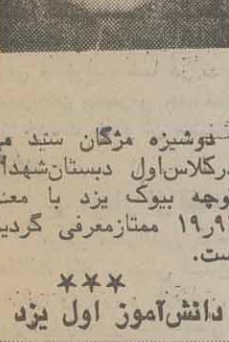 دوشیزه مژگان سید
درکلاس‌اول دبستان‌شهدا
وچه بیوک یزد با معد
۱۹ر۹ ممتازمعرفی گردید
ست.
***
دانش‌آموز اول یزد